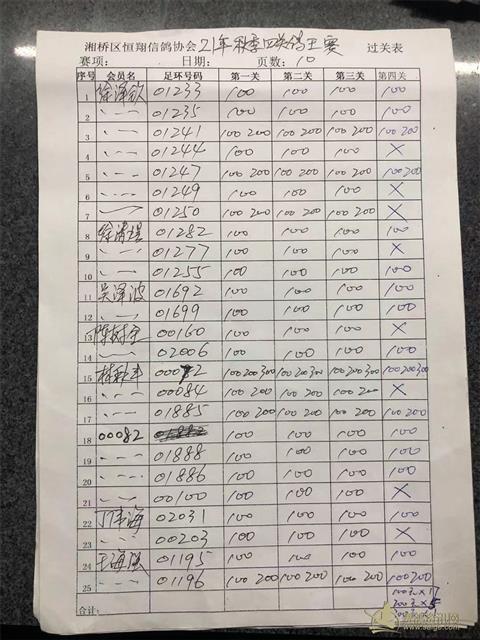 湘桥区恒翔信鸽协会21年秋季四关鸽王赛 过关表
赛项: 日期: 页数: 10
序号 会员名 足环号码 第一关 第二关 第三关 第四关
1 徐泽钦 01233 100 100 100 100
2 〃 01235 100 100 100 100
3 〃 01241 100 200 100 200 100 200 100 200
4 〃 01244 100 100 100 ×
5 〃 01247 100 200 100 200 100 200 100 200
6 〃 01249 100 100 100 ×
7 〃 01250 100 200 100 200 100 200 ×
8 01282 100 100 100 100
9 〃 01277 100 100 100 ×
10 〃 01255 100 100 100 100
11 吴泽波 01692 100 100 100 100
12 〃 01699 100 100 100 100
13 00160 100 100 100 ×
14 〃 02006 100 100 100 100
15 100 200 300 100 200 300 100 200 300 100 200 300
16 〃 00084 100 200 100 200 100 200 ×
17 〃 01885 100 200 100 200 100 200 100 200
18 00082 100 100 100 100
19 〃 01888 100 100 100 100
20 〃 01886 100 100 100 100
21 〃 00100 100 100 100 ×
22 丁伟海 02031 100 100 100 100
23 〃 00203 100 100 100 ×
24 王海强 01195 100 100 100 100
25 〃 01196 100 200 100 200 100 200 100 200
合计: 100元×17
200元×5